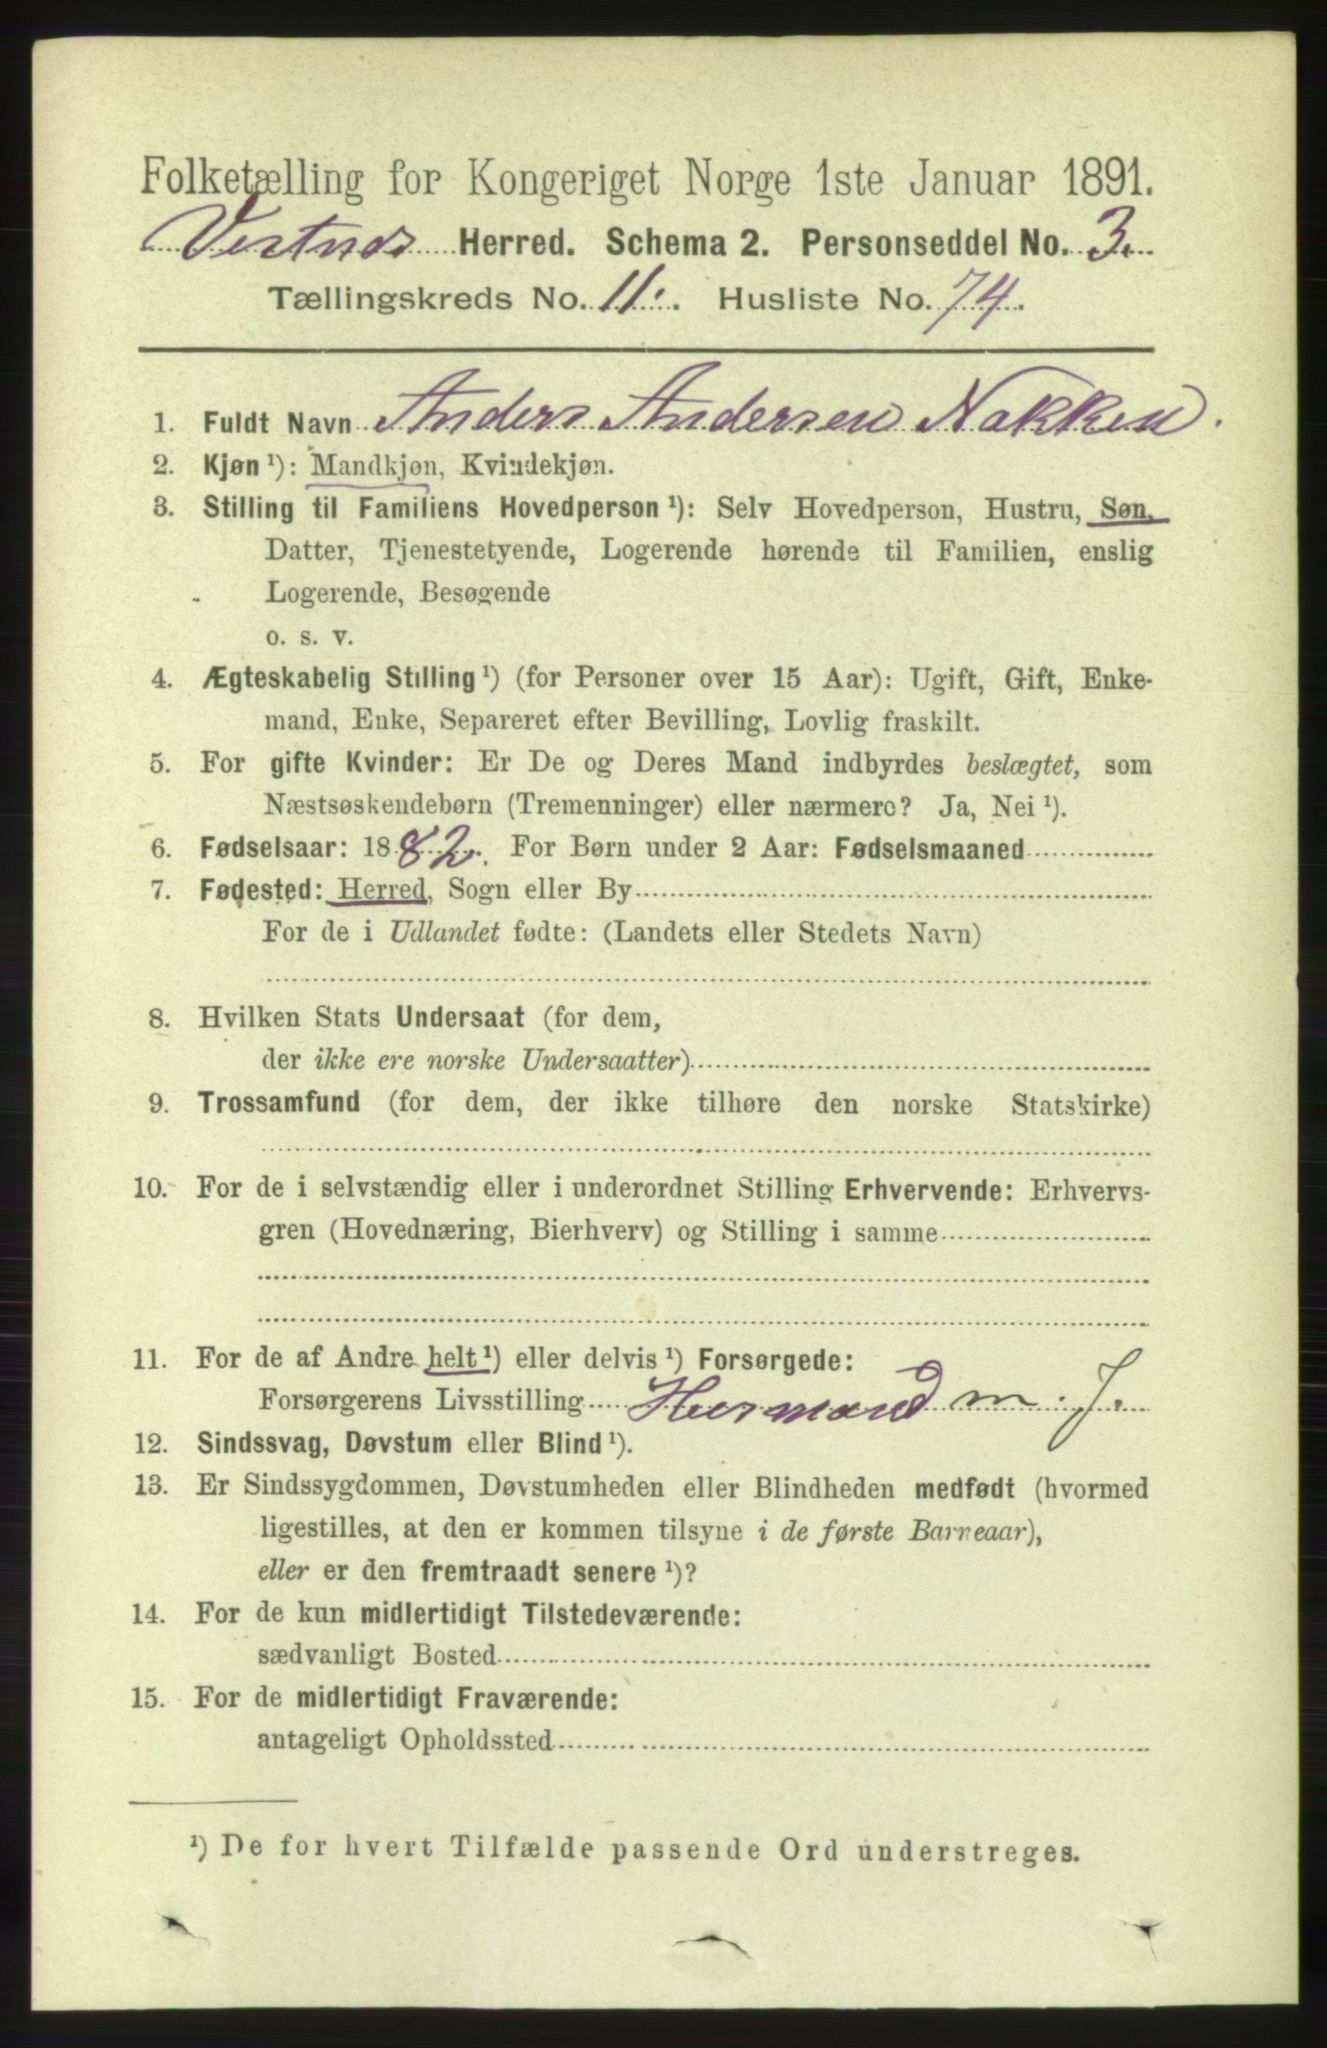 Folketælling for Kongeriget Norge 1ste Januar 1891.
Vestnes Herred. Schema 2. Personseddel No. 3.
Tællingskreds No. 11. Husliste No. 74.
1. Fuldt Navn Anders Andersen Nakken.
2. Kjøn ¹): Mandkjøn, Kvindekjøn.
3. Stilling til Familiens Hovedperson ¹): Selv Hovedperson, Hustru, Søn,
Datter, Tjenestetyende, Logerende hørende til Familien, enslig
Logerende, Besøgende
o. s. v.
4. Ægteskabelig Stilling ¹) (for Personer over 15 Aar): Ugift, Gift, Enke-
mand, Enke, Separeret efter Bevilling, Lovlig fraskilt.
5. For gifte Kvinder: Er De og Deres Mand indbyrdes beslægtet, som
Næstsøskendebørn (Tremenninger) eller nærmere? Ja, Nei ¹).
6. Fødselsaar: 1882. For Børn under 2 Aar: Fødselsmaaned
7. Fødested: Herred, Sogn eller By
For de i Udlandet fødte: (Landets eller Stedets Navn)
8. Hvilken Stats Undersaat (for dem,
der ikke ere norske Undersaatter)
9. Trossamfund (for dem, der ikke tilhøre den norske Statskirke)
10. For de i selvstændig eller i underordnet Stilling Erhvervende: Erhvervs-
gren (Hovednæring, Bierhverv) og Stilling i samme
11. For de af Andre helt ¹) eller delvis ¹) Forsørgede:
Forsørgerens Livsstilling Husmand m. J.
12. Sindssvag, Døvstum eller Blind ¹).
13. Er Sindssygdommen, Døvstumheden eller Blindheden medfødt (hvormed
ligestilles, at den er kommen tilsyne i de første Barneaar),
eller er den fremtraadt senere ¹)?
14. For de kun midlertidigt Tilstedeværende:
sædvanligt Bosted
15. For de midlertidigt Fraværende:
antageligt Opholdssted
¹) De for hvert Tilfælde passende Ord understreges.